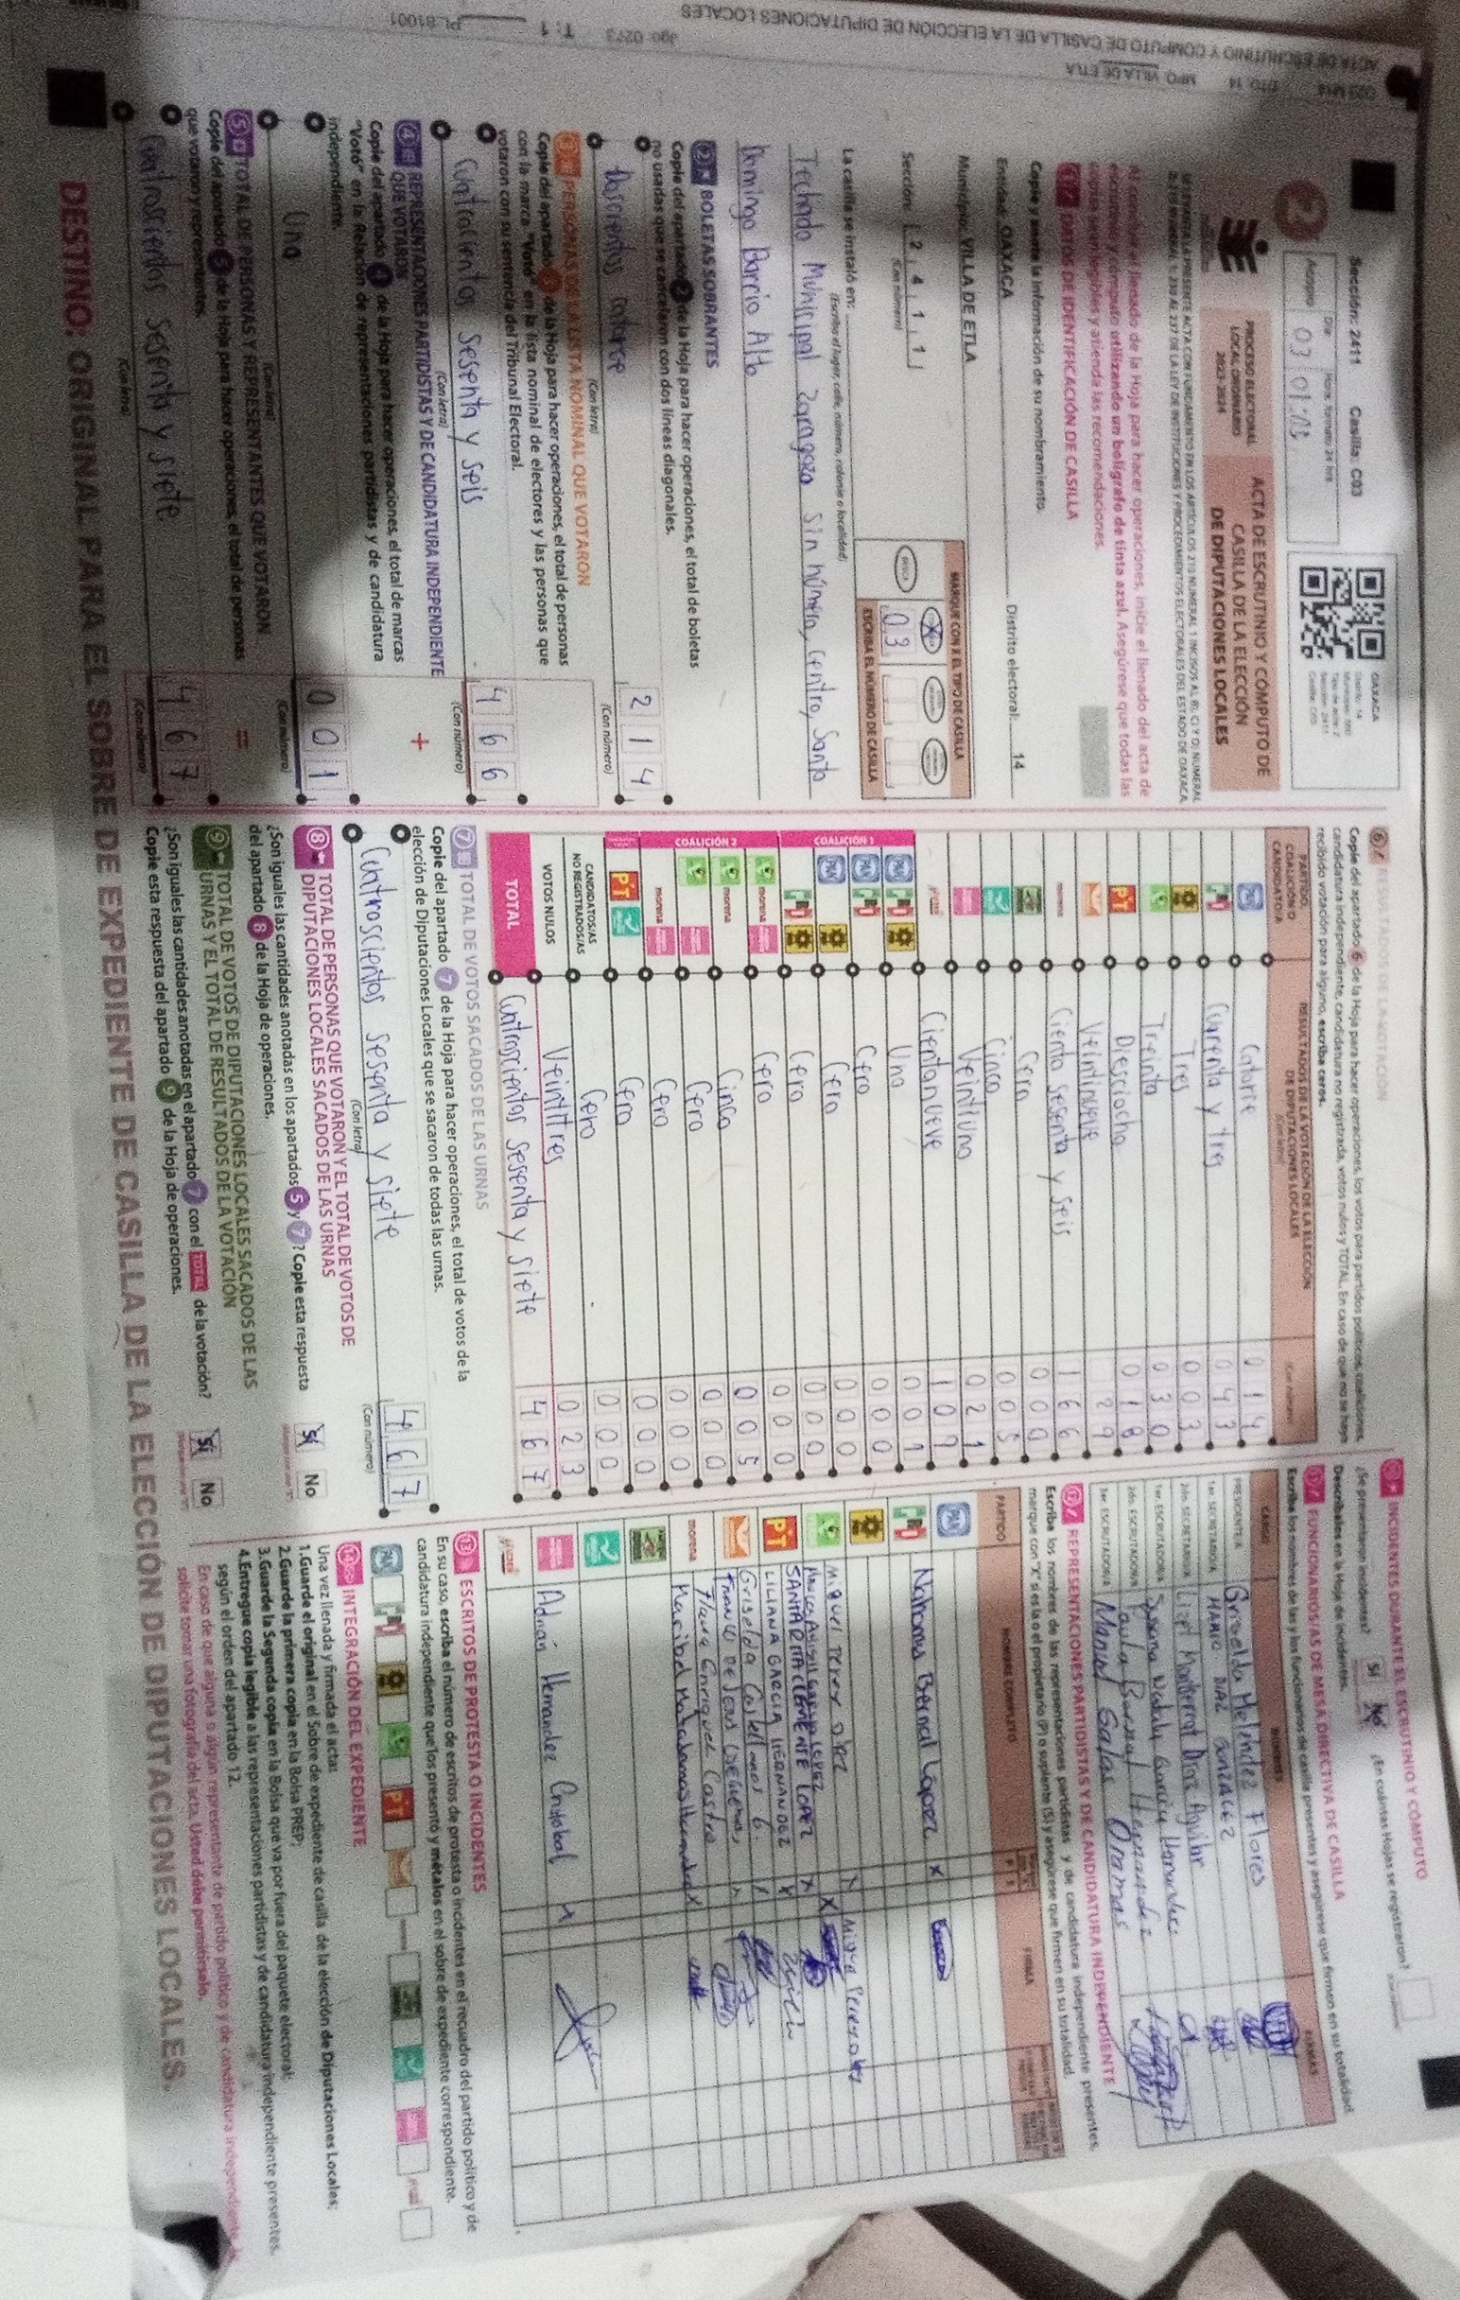 Sección: 2411 Casilla: C03
Acopio 03 01:13
PROCESO ELECTORAL
LOCAL ORDINARIO
2023-2024
ACTA DE ESCRUTINIO Y CÓMPUTO DE
CASILLA DE LA ELECCIÓN
DE DIPUTACIONES LOCALES
OAXACA
Al concluir el llenado de la Hoja para hacer operaciones, inicie el llenado del acta de
escrutinio y cómputo utilizando un bolígrafo de tinta azul. Asegúrese que todas las
copias sean legibles y atienda las recomendaciones.
1 DATOS DE IDENTIFICACIÓN DE CASILLA
Copie y anote la información de su nombramiento.
Entidad: OAXACA Distrito electoral: 14
Municipio: VILLA DE ETLA
Sección: 2 4 1 1
(Con número)
MARQUE CON X EL TIPO DE CASILLA
X
ESCRIBA EL NÚMERO DE CASILLA
03
La casilla se instaló en:
(Escriba el lugar: calle, número, colonia o localidad)
Techado Municipal Zaragoza Sin número, Centro, Santo
Domingo Barrio Alto
2 BOLETAS SOBRANTES
Copie del apartado 2 de la Hoja para hacer operaciones, el total de boletas
no usadas que se cancelaron con dos líneas diagonales.
Doscientas catorce 2 1 4
(Con letra) (Con número)
3 PERSONAS DE LA LISTA NOMINAL QUE VOTARON
Copie del apartado 3 de la Hoja para hacer operaciones, el total de personas
con la marca "Votó" en la lista nominal de electores y las personas que
votaron con su sentencia del Tribunal Electoral.
Cuatrocientos sesenta y seis 4 6 6
(Con letra) (Con número)
4 REPRESENTACIONES PARTIDISTAS Y DE CANDIDATURA INDEPENDIENTE
QUE VOTARON +
Copie del apartado 4 de la Hoja para hacer operaciones, el total de marcas
"Votó" en la Relación de representaciones partidistas y de candidatura
independiente.
Uno 0 0 1
(Con letra) (Con número)
5 TOTAL DE PERSONAS Y REPRESENTANTES QUE VOTARON =
Copie del apartado 5 de la Hoja para hacer operaciones, el total de personas
que votaron y representantes.
Cuatrocientos sesenta y siete 4 6 7
(Con letra) (Con número)
6 RESULTADOS DE LA VOTACIÓN
Copie del apartado 6 de la Hoja para hacer operaciones, los votos para partidos políticos, coaliciones,
candidatura independiente, candidatura no registrada, votos nulos y TOTAL. En caso de que no se haya
recibido votación para alguno, escriba ceros.
PARTIDO,
COALICIÓN O
CANDIDATO/A
RESULTADOS DE LA VOTACIÓN DE LA ELECCIÓN
DE DIPUTACIONES LOCALES
PAN Catorce 0 1 4
PRI Cuarenta y tres 0 4 3
PRD Tres 0 0 3
Treinta 0 3 0
PT Dieciocho 0 1 8
Veintinueve 2 9
morena Ciento sesenta y seis 1 6 6
Cero 0 0 0
Cinco 0 0 5
Veintiuno 0 2 1
Cientonueve 1 0 9
COALICIÓN 1
PAN PRI PRD Uno 0 0 1
PAN PRI Cero 0 0 0
PAN PRD Cero 0 0 0
PRI PRD Cero 0 0 0
COALICIÓN 2
morena Cero 0 0 0
morena Cinco 0 0 5
Cero 0 0 0
morena Cero 0 0 0
PT Cero 0 0 0
CANDIDATOS/AS
NO REGISTRADOS/AS Cero 0 0 0
VOTOS NULOS Veintitres 0 2 3
TOTAL Cuatroscientos sesenta y siete 4 6 7
7 TOTAL DE VOTOS SACADOS DE LAS URNAS
Copie del apartado 7 de la Hoja para hacer operaciones, el total de votos de la
elección de Diputaciones Locales que se sacaron de todas las urnas.
Cuatroscientos sesenta y siete 4 6 7
(Con letra) (Con número)
8 TOTAL DE PERSONAS QUE VOTARON Y EL TOTAL DE VOTOS DE
DIPUTACIONES LOCALES SACADOS DE LAS URNAS
¿Son iguales las cantidades anotadas en los apartados 5 y 7? Copie esta respuesta
del apartado 8 de la Hoja de operaciones.
Sí No
9 TOTAL DE VOTOS DE DIPUTACIONES LOCALES SACADOS DE LAS
URNAS Y EL TOTAL DE RESULTADOS DE LA VOTACIÓN
¿Son iguales las cantidades anotadas en el apartado 7 con el TOTAL de la votación?
Copie esta respuesta del apartado 9 de la Hoja de operaciones.
Sí No
INCIDENTES DURANTE EL ESCRUTINIO Y CÓMPUTO
¿Se presentaron incidentes? Sí No ¿En cuántas Hojas se registraron?
Descríbalos en la Hoja de incidentes.
FUNCIONARIOS/AS DE MESA DIRECTIVA DE CASILLA
Escriba los nombres de las y los funcionarios de casilla presentes y asegúrese que firmen en su totalidad.
CARGO NOMBRES FIRMAS
PRESIDENTE/A Griselda Melendez Flores
1er. SECRETARIO/A MARIO DIAZ GONZALEZ
2do. SECRETARIO/A Lizet Monterrat Díaz Aguilar
1er. ESCRUTADOR/A Susana
2do. ESCRUTADOR/A Paula Bernal Hernandez
3er. ESCRUTADOR/A Manuel Galas Oramas
12 REPRESENTACIONES PARTIDISTAS Y DE CANDIDATURA INDEPENDIENTE
Escriba los nombres de las representaciones partidistas y de candidatura independiente presentes,
marque con "X" si es la o el propietario (P) o suplente (S) y asegúrese que firmen en su totalidad.
PARTIDO NOMBRE COMPLETO FIRMA
PAN Nahomy Bernal López X
Miguel Perez
SANTA RITA CLEMENTE LOPEZ X
PT LILIANA GARCIA HERNANDEZ X
Griselda Castellanos G.
morena Flora Enriquez Castro
Maribel
Adrián Hernandez Cristobal X
13 ESCRITOS DE PROTESTA O INCIDENTES
En su caso, escriba el número de escritos de protesta o incidentes en el recuadro del partido político y de
candidatura independiente que los presentó y métalos en el sobre de expediente correspondiente.
14 INTEGRACIÓN DEL EXPEDIENTE
Una vez llenada y firmada el acta:
1.Guarde el original en el Sobre de expediente de casilla de la elección de Diputaciones Locales;
2.Guarde la primera copia en la Bolsa PREP;
3.Guarde la Segunda copia en la Bolsa que va por fuera del paquete electoral;
4.Entregue copia legible a las representaciones partidistas y de candidatura independiente presentes,
según el orden del apartado 12.
En caso de que alguna o algún representante de partido político y de candidatura independiente
solicite tomar una fotografía del acta, Usted debe permitírselo.
DESTINO: ORIGINAL PARA EL SOBRE DE EXPEDIENTE DE CASILLA DE LA ELECCIÓN DE DIPUTACIONES LOCALES.
DTO. 14 MPO. VILLA DE ETLA
ACTA DE ESCRUTINIO Y CÓMPUTO DE CASILLA DE LA ELECCIÓN DE DIPUTACIONES LOCALES
T: 1